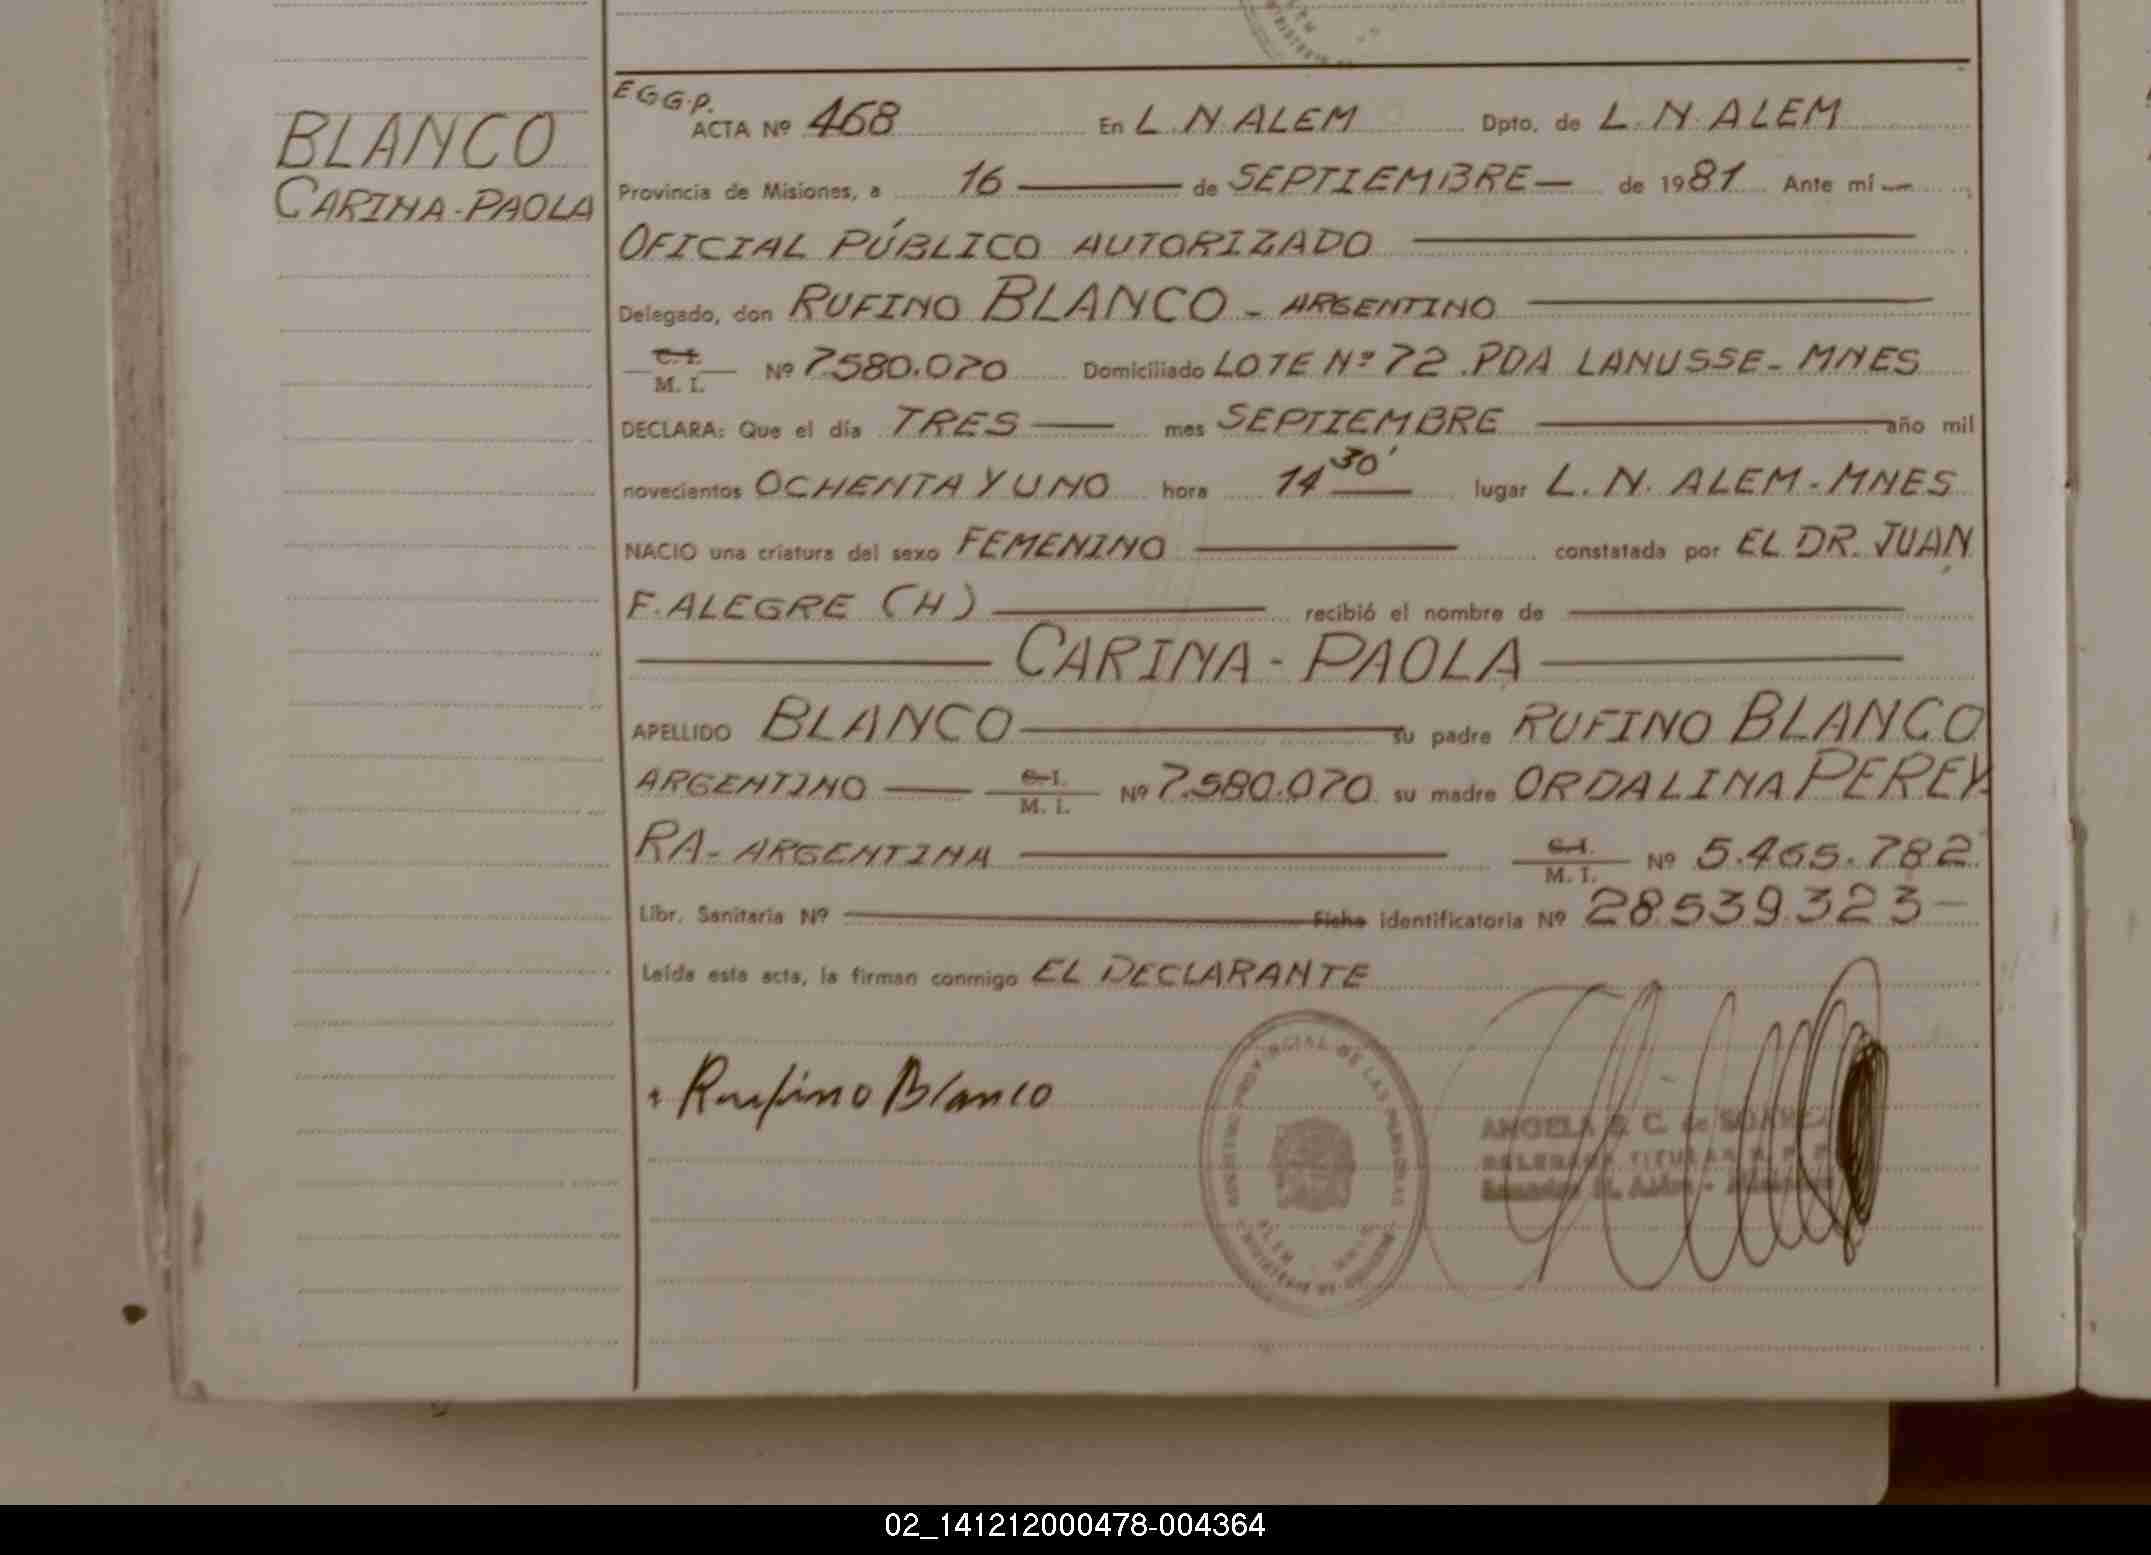 BLANCO
CARINA-PAOLA
E G G.P.
ACTA Nº 468 En L.N ALEM Dpto. de L.N.ALEM
Provincia de Misiones, a 16 de SEPTIEMBRE de 1981 Ante mí
OFICIAL PÚBLICO AUTORIZADO
Delegado, don RUFINO BLANCO - ARGENTINO
C. I.
M. I. Nº 7580.070 Domiciliado LOTE Nº 72 .PDA LANUSSE - MNES
DECLARA: Que el día TRES mes SEPTIEMBRE año mil
novecientos OCHENTA Y UNO hora 14 30' lugar L.N. ALEM-MNES
NACIO una criatura del sexo FEMENINO constatada por EL DR. JUAN
F. ALEGRE (H) recibió el nombre de
CARINA - PAOLA
APELLIDO BLANCO su padre RUFINO BLANCO
ARGENTINO C. I. M. I. Nº 7.580.070 su madre ORDALINA PEREY
RA- ARGENTINA C. I. M. I. Nº 5.465.782
Libr. Sanitaria Nº Ficha identificatoria Nº 28539323-
Leída esta acta, la firman conmigo EL DECLARANTE
Rufino Blanco
CIAL DE LAS PERSONAS
ANGELA C. de
02_141212000478-004364